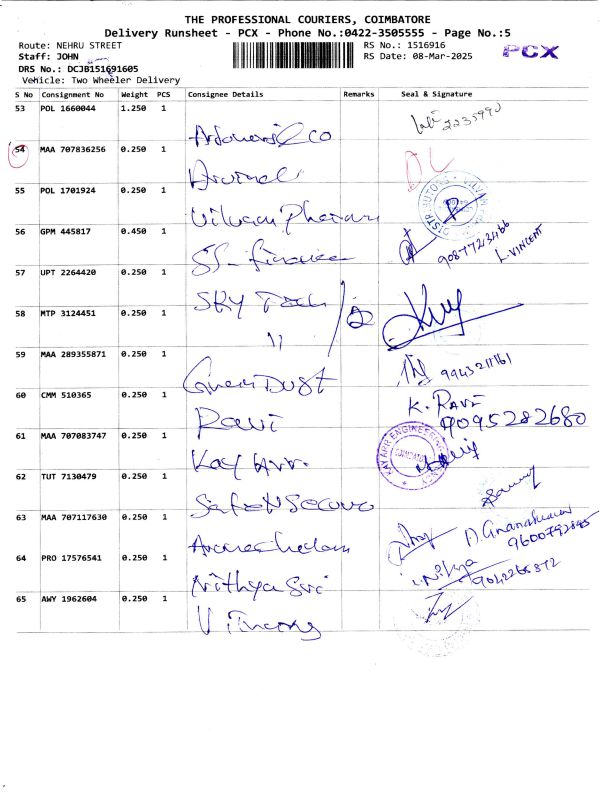 THE PROFESSIONAL COURIERS, COIMBATORE
Delivery Runsheet - PCX - Phone No.:0422-3505555 - Page No.:5
Route: NEHRU STREET
RS No.: 1516916
PCX
Staff: JOHN
RS Date: 08-Mar-2025
DRS No.: DCJB151691605
Vehicle: Two Wheeler Delivery
S No Consignment No Weight PCS Consignee Details Remarks Seal & Signature
53 POL 1660044 1.250 1
2235990
54 MAA 707836256 0.250 1
DL
55 POL 1701924 0.250 1
Vilvam Pharam
56 GPM 445817 0.450 1
9087723466
L. VINCENT
SS-finance
57 UPT 2264420 0.250 1
SKY Tech
58 MTP 3124451 0.250 1
11
59 MAA 289355871 0.250 1
9943211161
Green Dust
60 CMM 510365 0.250 1
K. RAVI
9095282680
Ravi
61 MAA 707083747 0.250 1
KAY ARR ENGINEERING
Kay Arr.
62 TUT 7130479 0.250 1
63 MAA 707117630 0.250 1
9600792845
Arunachalam
64 PRO 17576541 0.250 1
Nithya
9042266372
Nithya Sri
65 AWY 1962604 0.250 1